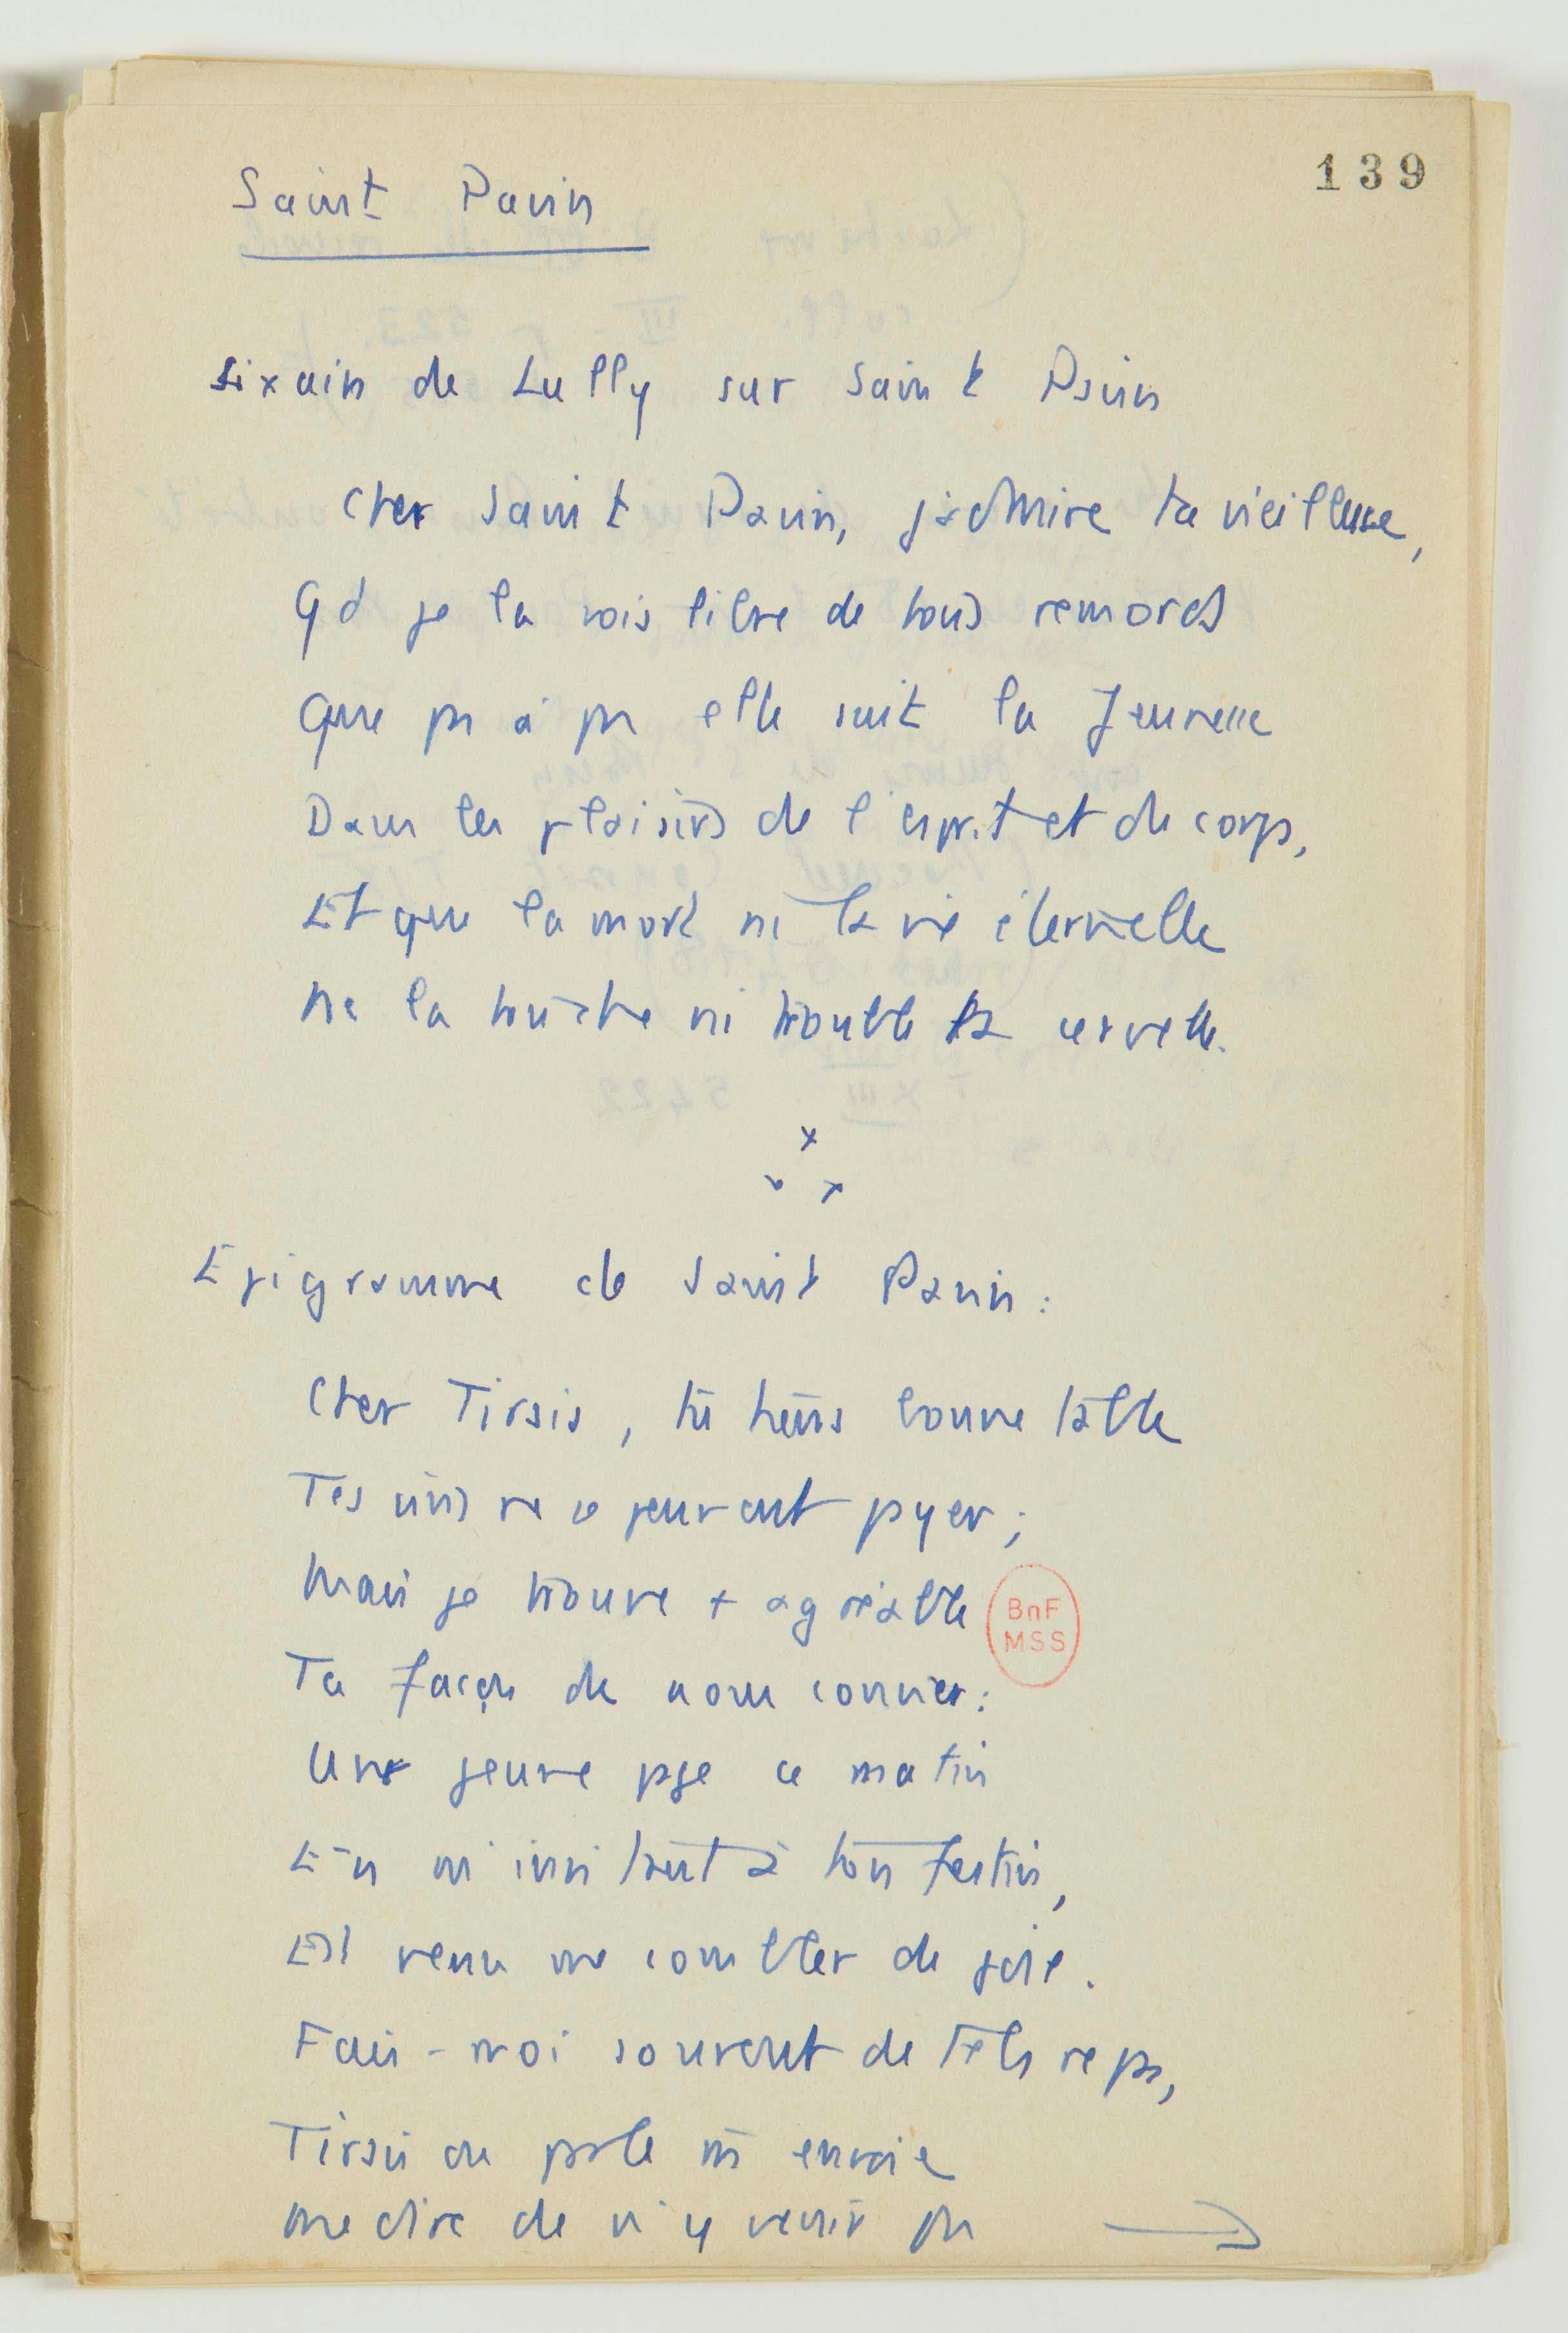 139
Saint Pavin
Sixain de Lully sur Saint Pavin
Cher Saint Pavin, j'admire ta vieillesse,
Qd je la vois libre de tous remords
Que pas à pas elle suit la Jeunesse
Dans les plaisirs de l'esprit et du corps,
Et que la mort ni la vie éternelle
Ne la touche ni trouble ta cervelle.
Epigramme de Saint Pavin :
Cher Tirsis, tu tiens bonne table
Tes vins ne se peuvent payer ;
Mais je trouve + agréable
Ta façon de nous convier :
Une jeune page ce matin
En m'invitant à ton festin,
Est venu me combler de joie.
Fais-moi souvent de tels repas,
Tirsis ou parle m'envoie
me dire de n'y venir pas
BnF
MSS